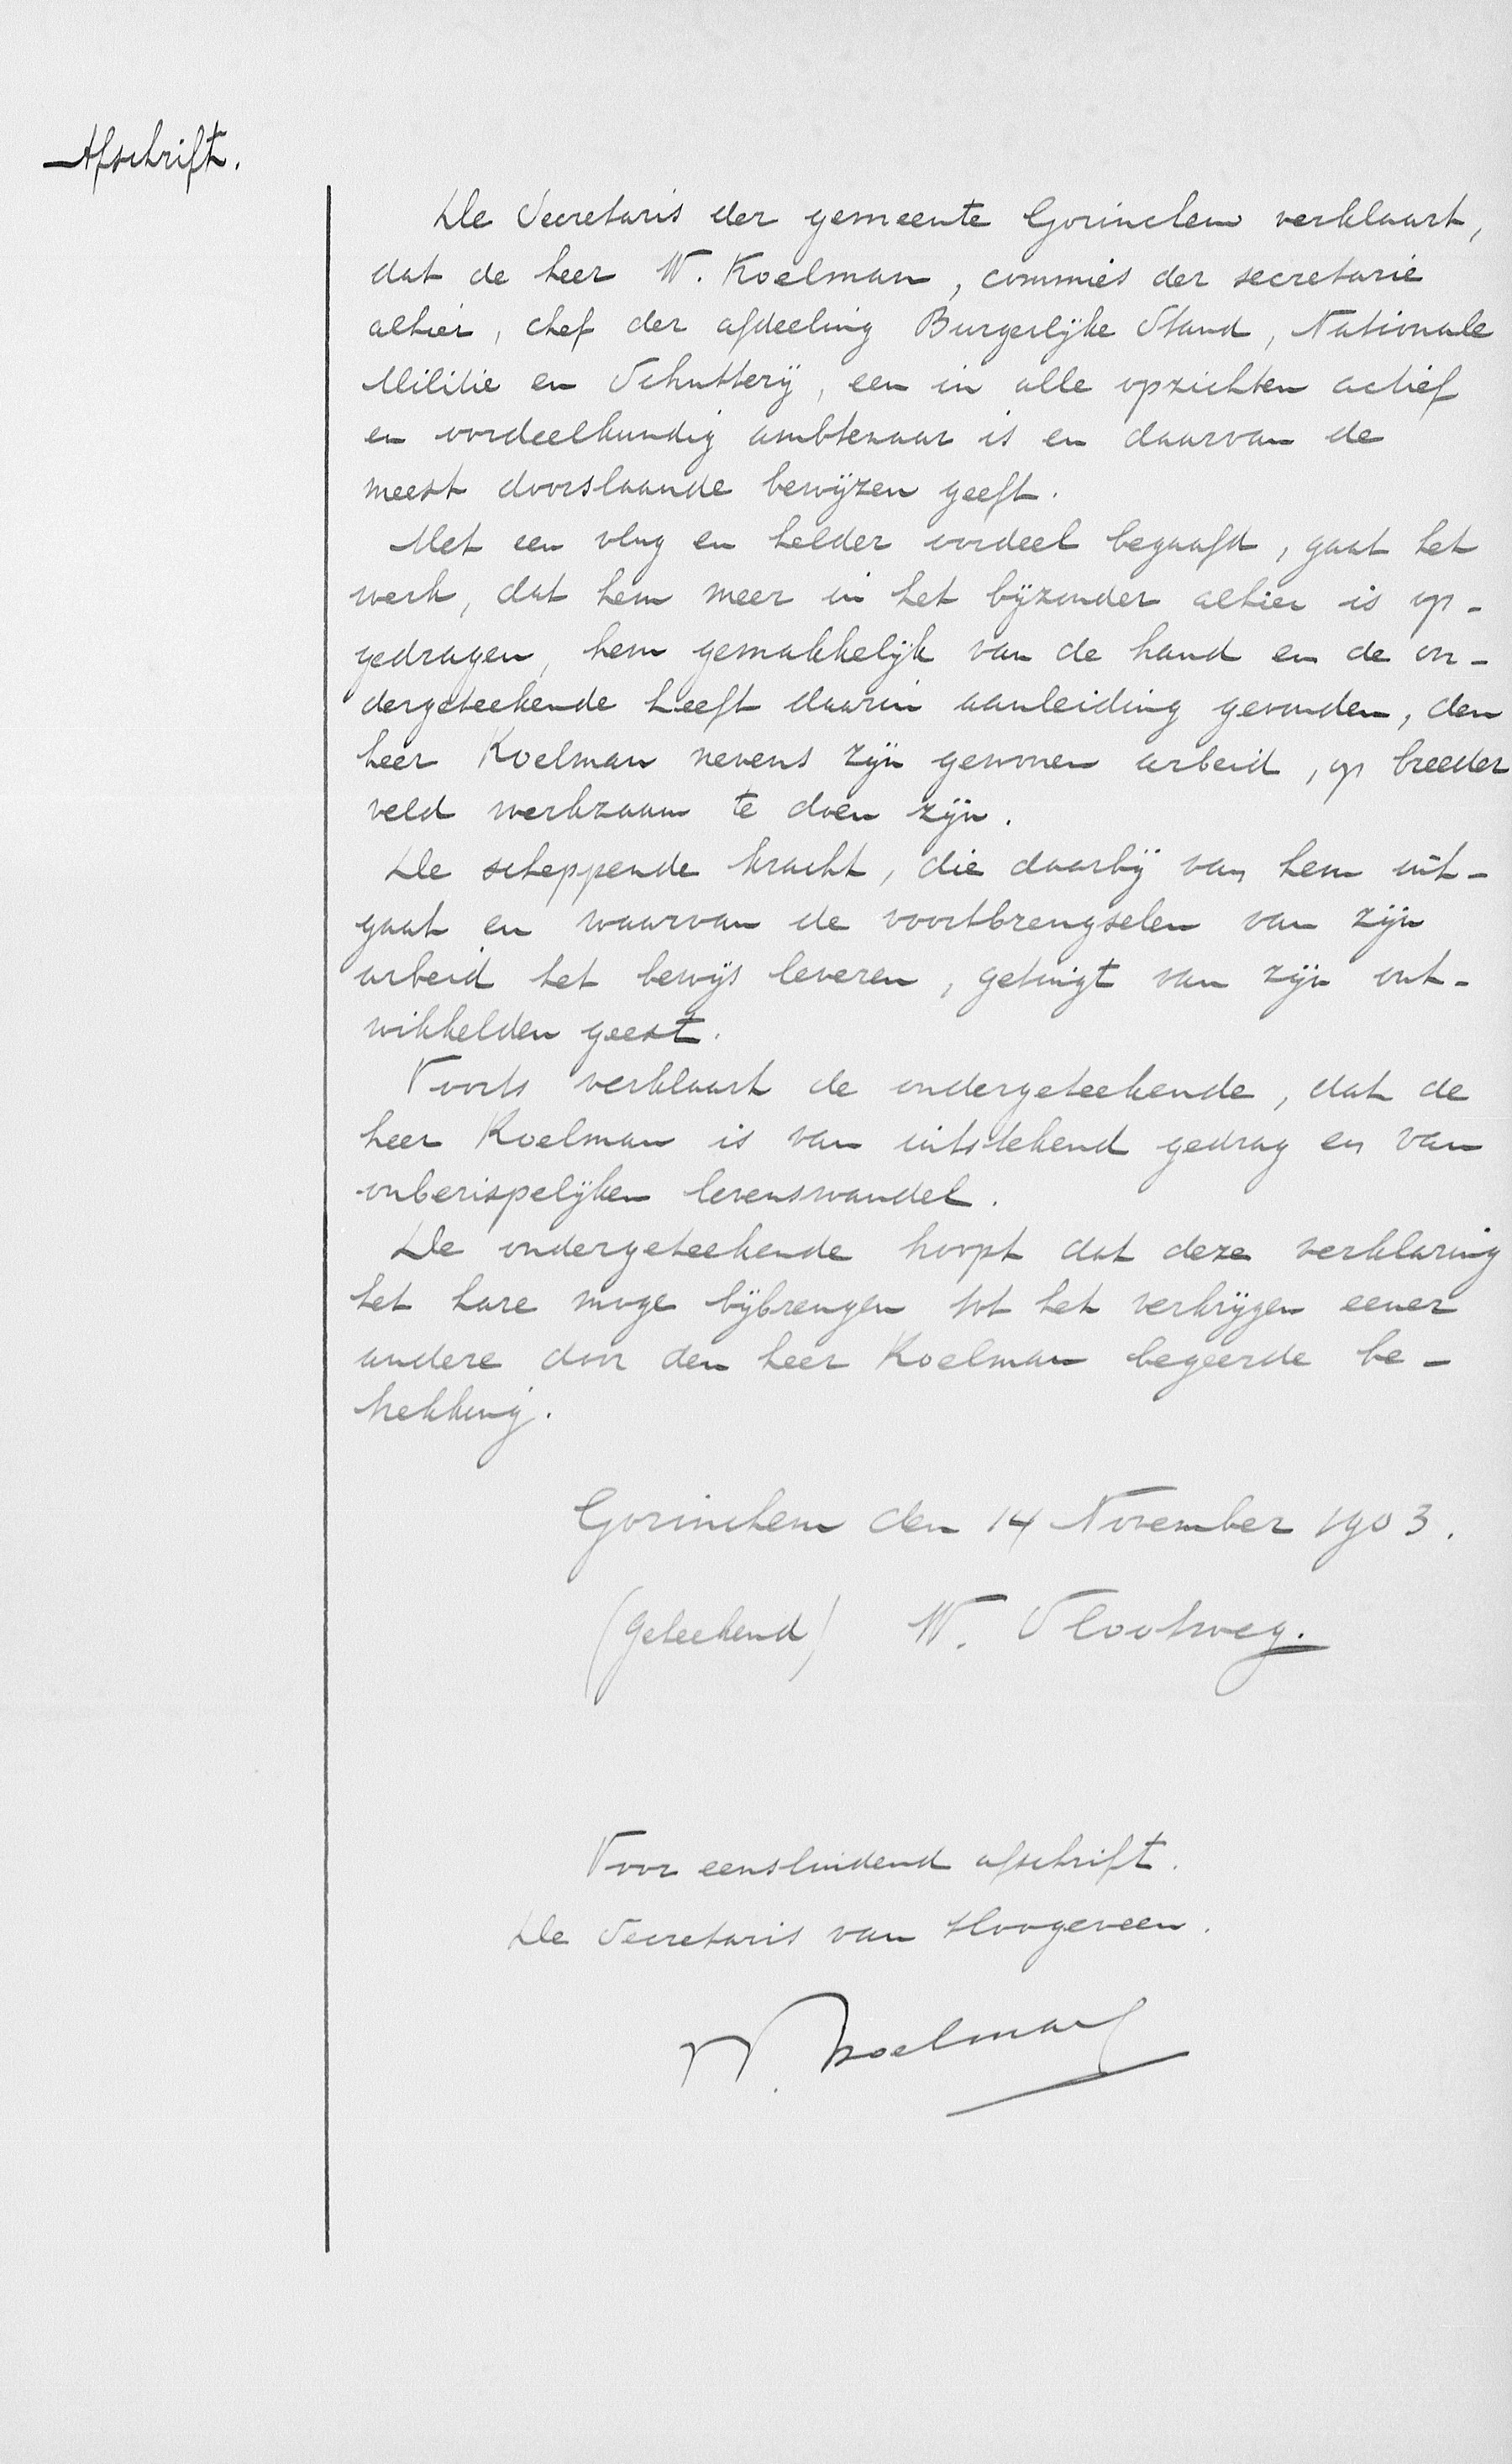 Afschrift.
De Secretaris der gemeente Gorinchem verklaart,
dat de heer W. Koelman, commies der secretarie
alhier, chef der afdeeling Burgerlijke Stand, Nationale
Militie en Schutterij, een in alle opzichten actief
en oordeelkundig ambtenaar is en daarvan de
meest doorslaande bewijzen geeft.
Met een vlug en helder oordeel begaafd, gaat het
werk, dat hem meer in het bijzonder alhier is op-
gedragen, hem gemakkelijk van de hand en de on-
dergeteekende heeft daarin aanleiding gevonden, den
heer Koelman nevens zijn gewonen arbeid, op breeder
veld werkzaam te doen zijn.
De scheppende kracht, die daarbij van hem uit-
gaat en waarvan de voortbrengselen van zijn
arbeid het bewijs leveren, getuigt van zijn ont-
wikkelden geest.
Voorts verklaart de ondergeteekende, dat de
heer Koelman is van uitstekend gedrag en van
onberispelijken levenswandel.
De ondergeteekende hoopt dat deze verklaring
het hare moge bijbrengen tot het verkrijgen eener
andere door den heer Koelman begeerde be-
trekking.
Gorinchem den 14 November 1903.
(geteekend) W. Slootweg.
Voor eensluidend afschrift.
De Secretaris van Hoogeveen.
W. Koelman